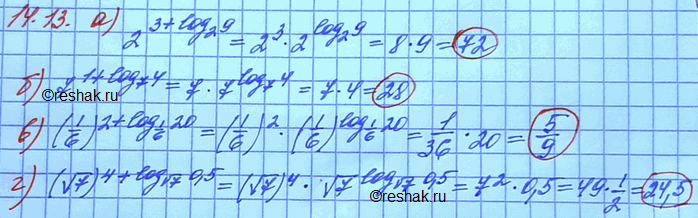 14.13. а) 2^(3+log₂9) = 2³·2^(log₂9) = 8·9 = 72
б) 7^(1+log₇4) = 7·7^(log₇4) = 7·4 = 28
©reshak.ru
в) (1/6)^(2+log_(1/6)20) = (1/6)²·(1/6)^(log_(1/6)20) = 1/36·20 = 5/9
г) (√7)^(4+log_(√7)0,5) = (√7)⁴·√7^(log_(√7)0,5) = 7²·0,5 = 49·1/2 = 24,5
©reshak.ru